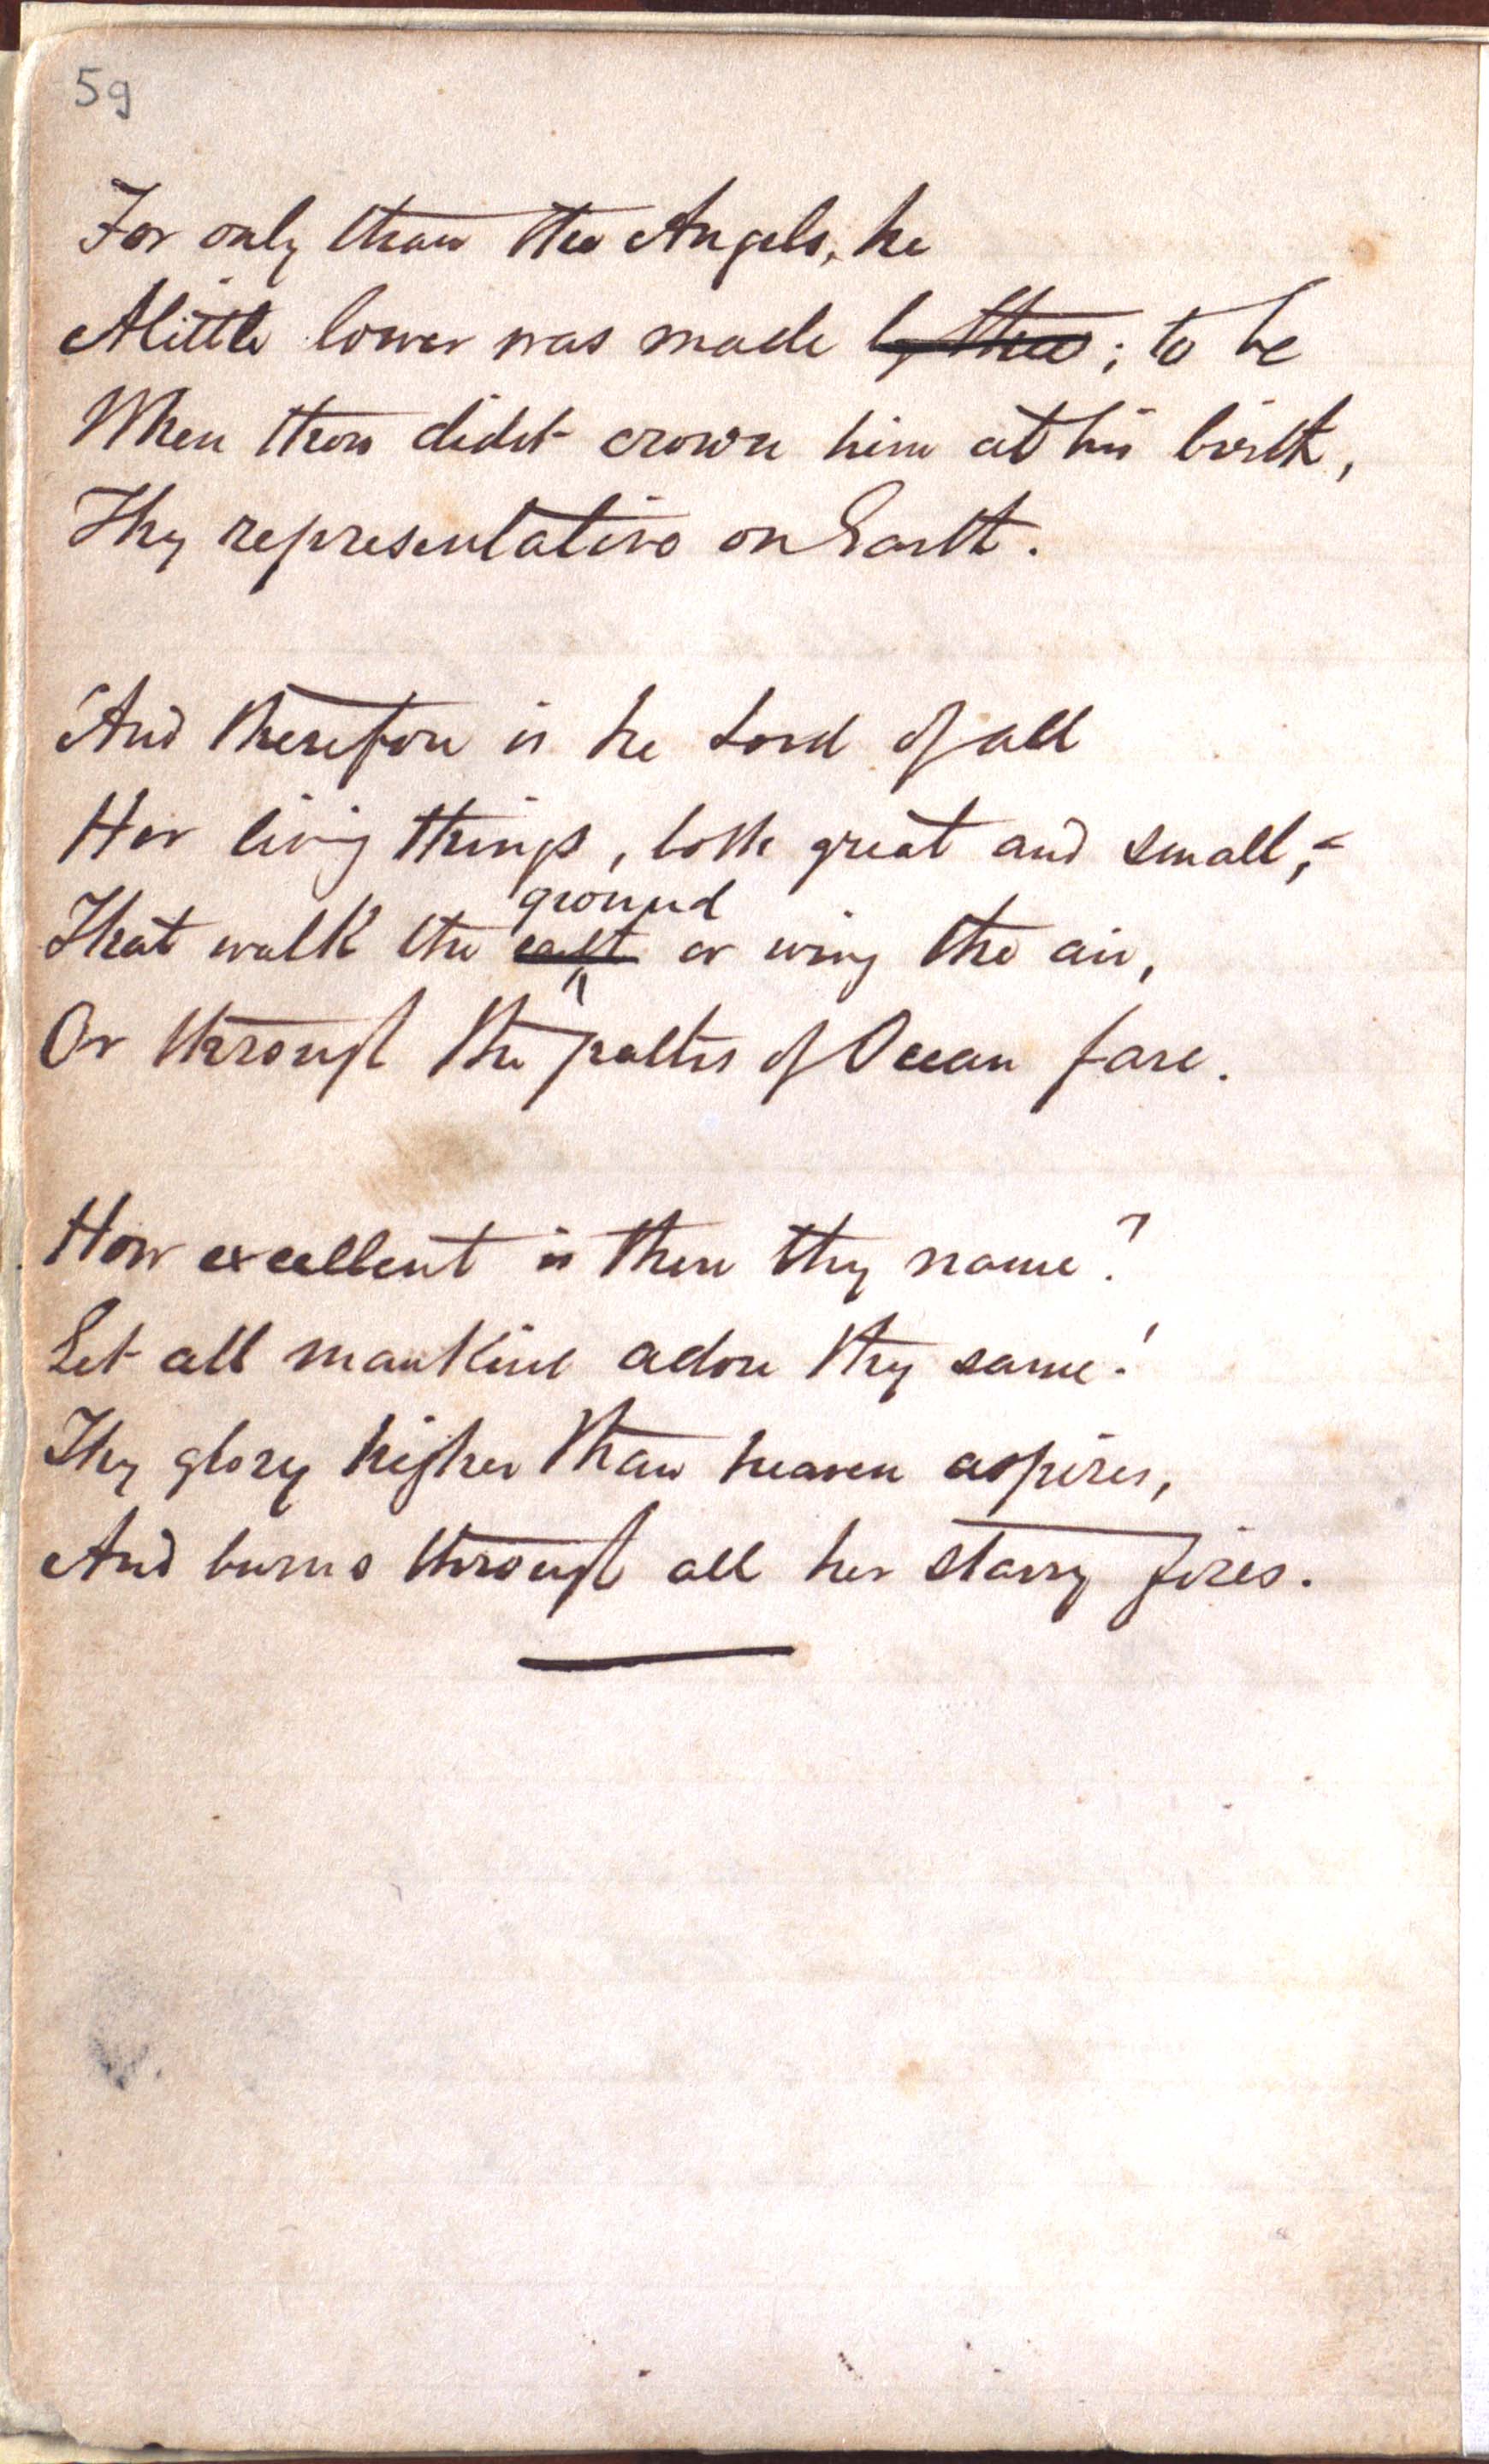 59
For only than the Angels, he
A little lower was made by thee; to be
When thou didst crown him at his birth,
Thy representative on Earth.
And therefore is he Lord of all
Her living things, both great and small,—
ground
That walk the earth or wing the air,
Or through the paths of Ocean fare.
How excellent is then thy name?
Let all mankind adore thy same!
Thy glory higher than heaven aspires,
And burns through all her starry fires.